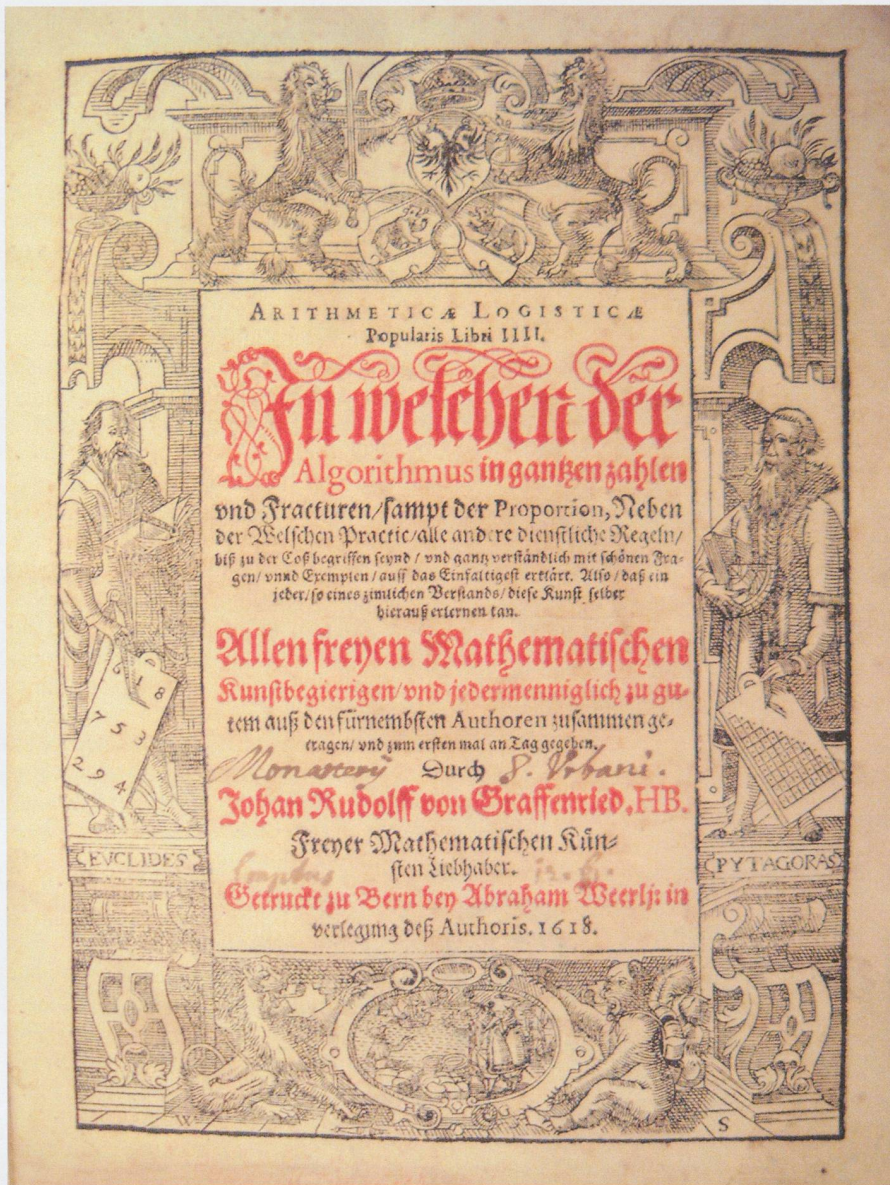 ARITHMETICÆ LOGISTICÆ
Popularis Libri IIII.
In welchen der
Algorithmus in gantzen zahlen
vnd Fracturen/sampt der Proportion, Neben
der Welschen Practic/alle andere dienstliche Regeln/
biß zu der Coß begriffen seynd / vnd gantz verständlich mit schönen Fra-
gen/ vnnd Exemplen / auff das Einfaltigest erklärt. Also / daß ein
jeder/so eines zimlichen Verstands/ diese Kunst selber
hierauß erlernen kan.
Allen freyen Mathematischen
Kunstbegierigen/vnd jedermenniglich zu gu-
tem auß den fürnembsten Authoren zusammen ge-
tragen/ vnd zum ersten mal an Tag gegeben.
Monastery Durch S. Vrbani.
Johan Rudolff von Graffenried, HB.
Freyer Mathematischen Kün-
sten Liebhaber.
Getruckt zu Bern bey Abraham Weerlj: in
verlegung deß Authoris. 1618.
6 1 8
7 5 3
2 9 4
EVCLIDES
PYTAGORAS
S